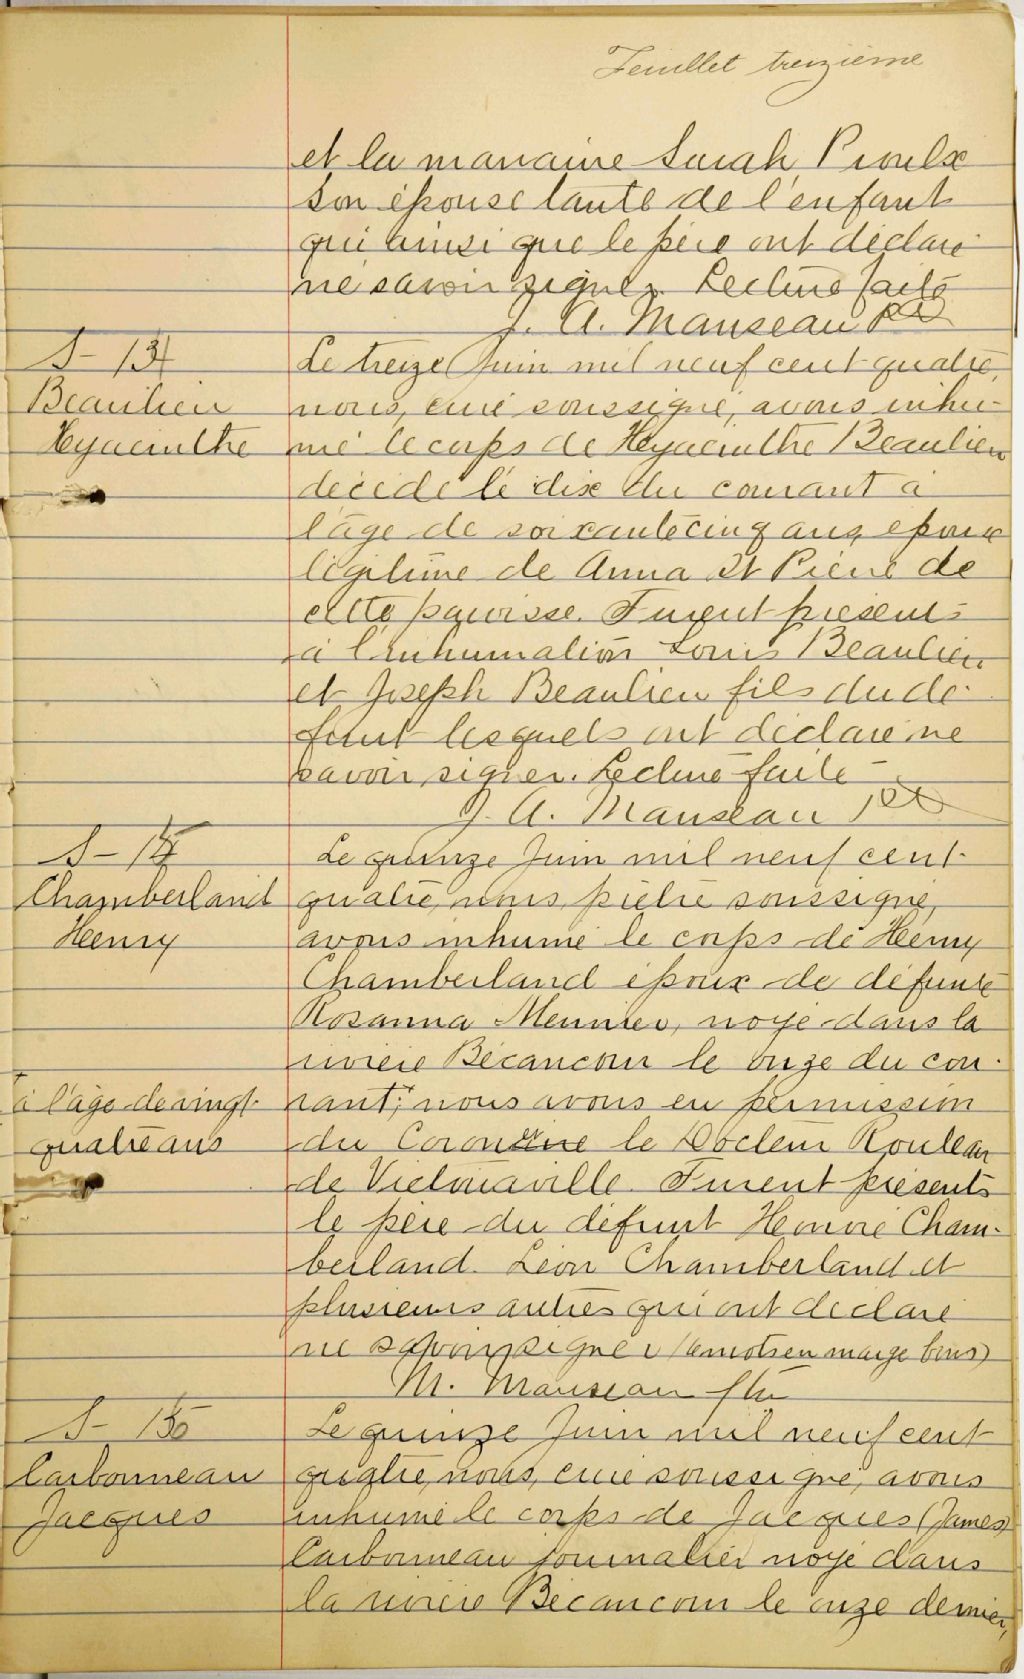 Feuillet treizième
et la marraine Sarah Proulx
son épouse tante de l'enfant
qui ainsi que le père ont déclaré
ne savoir signer. Lecture faite
J. A. Manseau Ptre
S-
Beaulieu
Hyacinthe
Le treize Juin mil neuf cent quatre,
nous, curé soussigné, avons inhu-
mé le corps de Hyacinthe Beaulieu
décédé le dix du courant à
l'âge de soixante cinq ans, époux
légitime de Anna St Pierre de
cette paroisse. Furent présents
à l'inhumation Louis Beaulieu
et Joseph Beaulieu fils du dé-
funt lesquels ont déclaré ne
savoir signer. Lecture faite
J. A. Manseau Ptre
S-
Chamberland
Henry
Le quinze Juin mil neuf cent
quatre, nous, prêtre soussigné,
avons inhumé le corps de Henry
Chamberland époux de défunte
Rosanna Meunier, noyé dans la
rivière Bécancour le onze du cou-
à l'âge de vingt
quatre ans
rant; nous avons eu permission
du le Docteur Rouleau
de Victoriaville. Furent présents
le père du défunt Honoré Cham-
berland. Léon Chamberland et
plusieurs autres qui ont déclaré
ne savoir signer (6 mots en marge bons)
M. Manseau Ptre
S-
Carbonneau
Jacques
Le quinze Juin mil neuf cent
quatre, nous, curé soussigné, avons
inhumé le corps de Jacques (James)
Carbonneau journalier noyé dans
la rivière Bécancour le onze dernier,